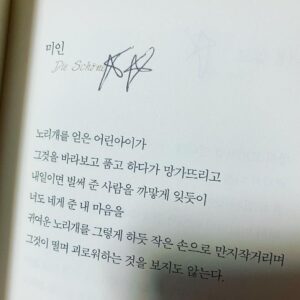 미인
Die Schöne
노리개를 얻은 어린아이가
그것을 바라보고 품고 하다가 망가뜨리고
내일이면 벌써 준 사람을 까맣게 잊듯이
너도 네게 준 내 마음을
귀여운 노리개를 그렇게 하듯 작은 손으로 만지작거리며
그것이 떨며 괴로워하는 것을 보지도 않는다.